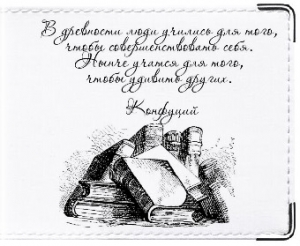 В древности люди учились для того,
чтобы совершенствовать себя.
Нынче учатся для того,
чтобы удивить других.
Конфуций